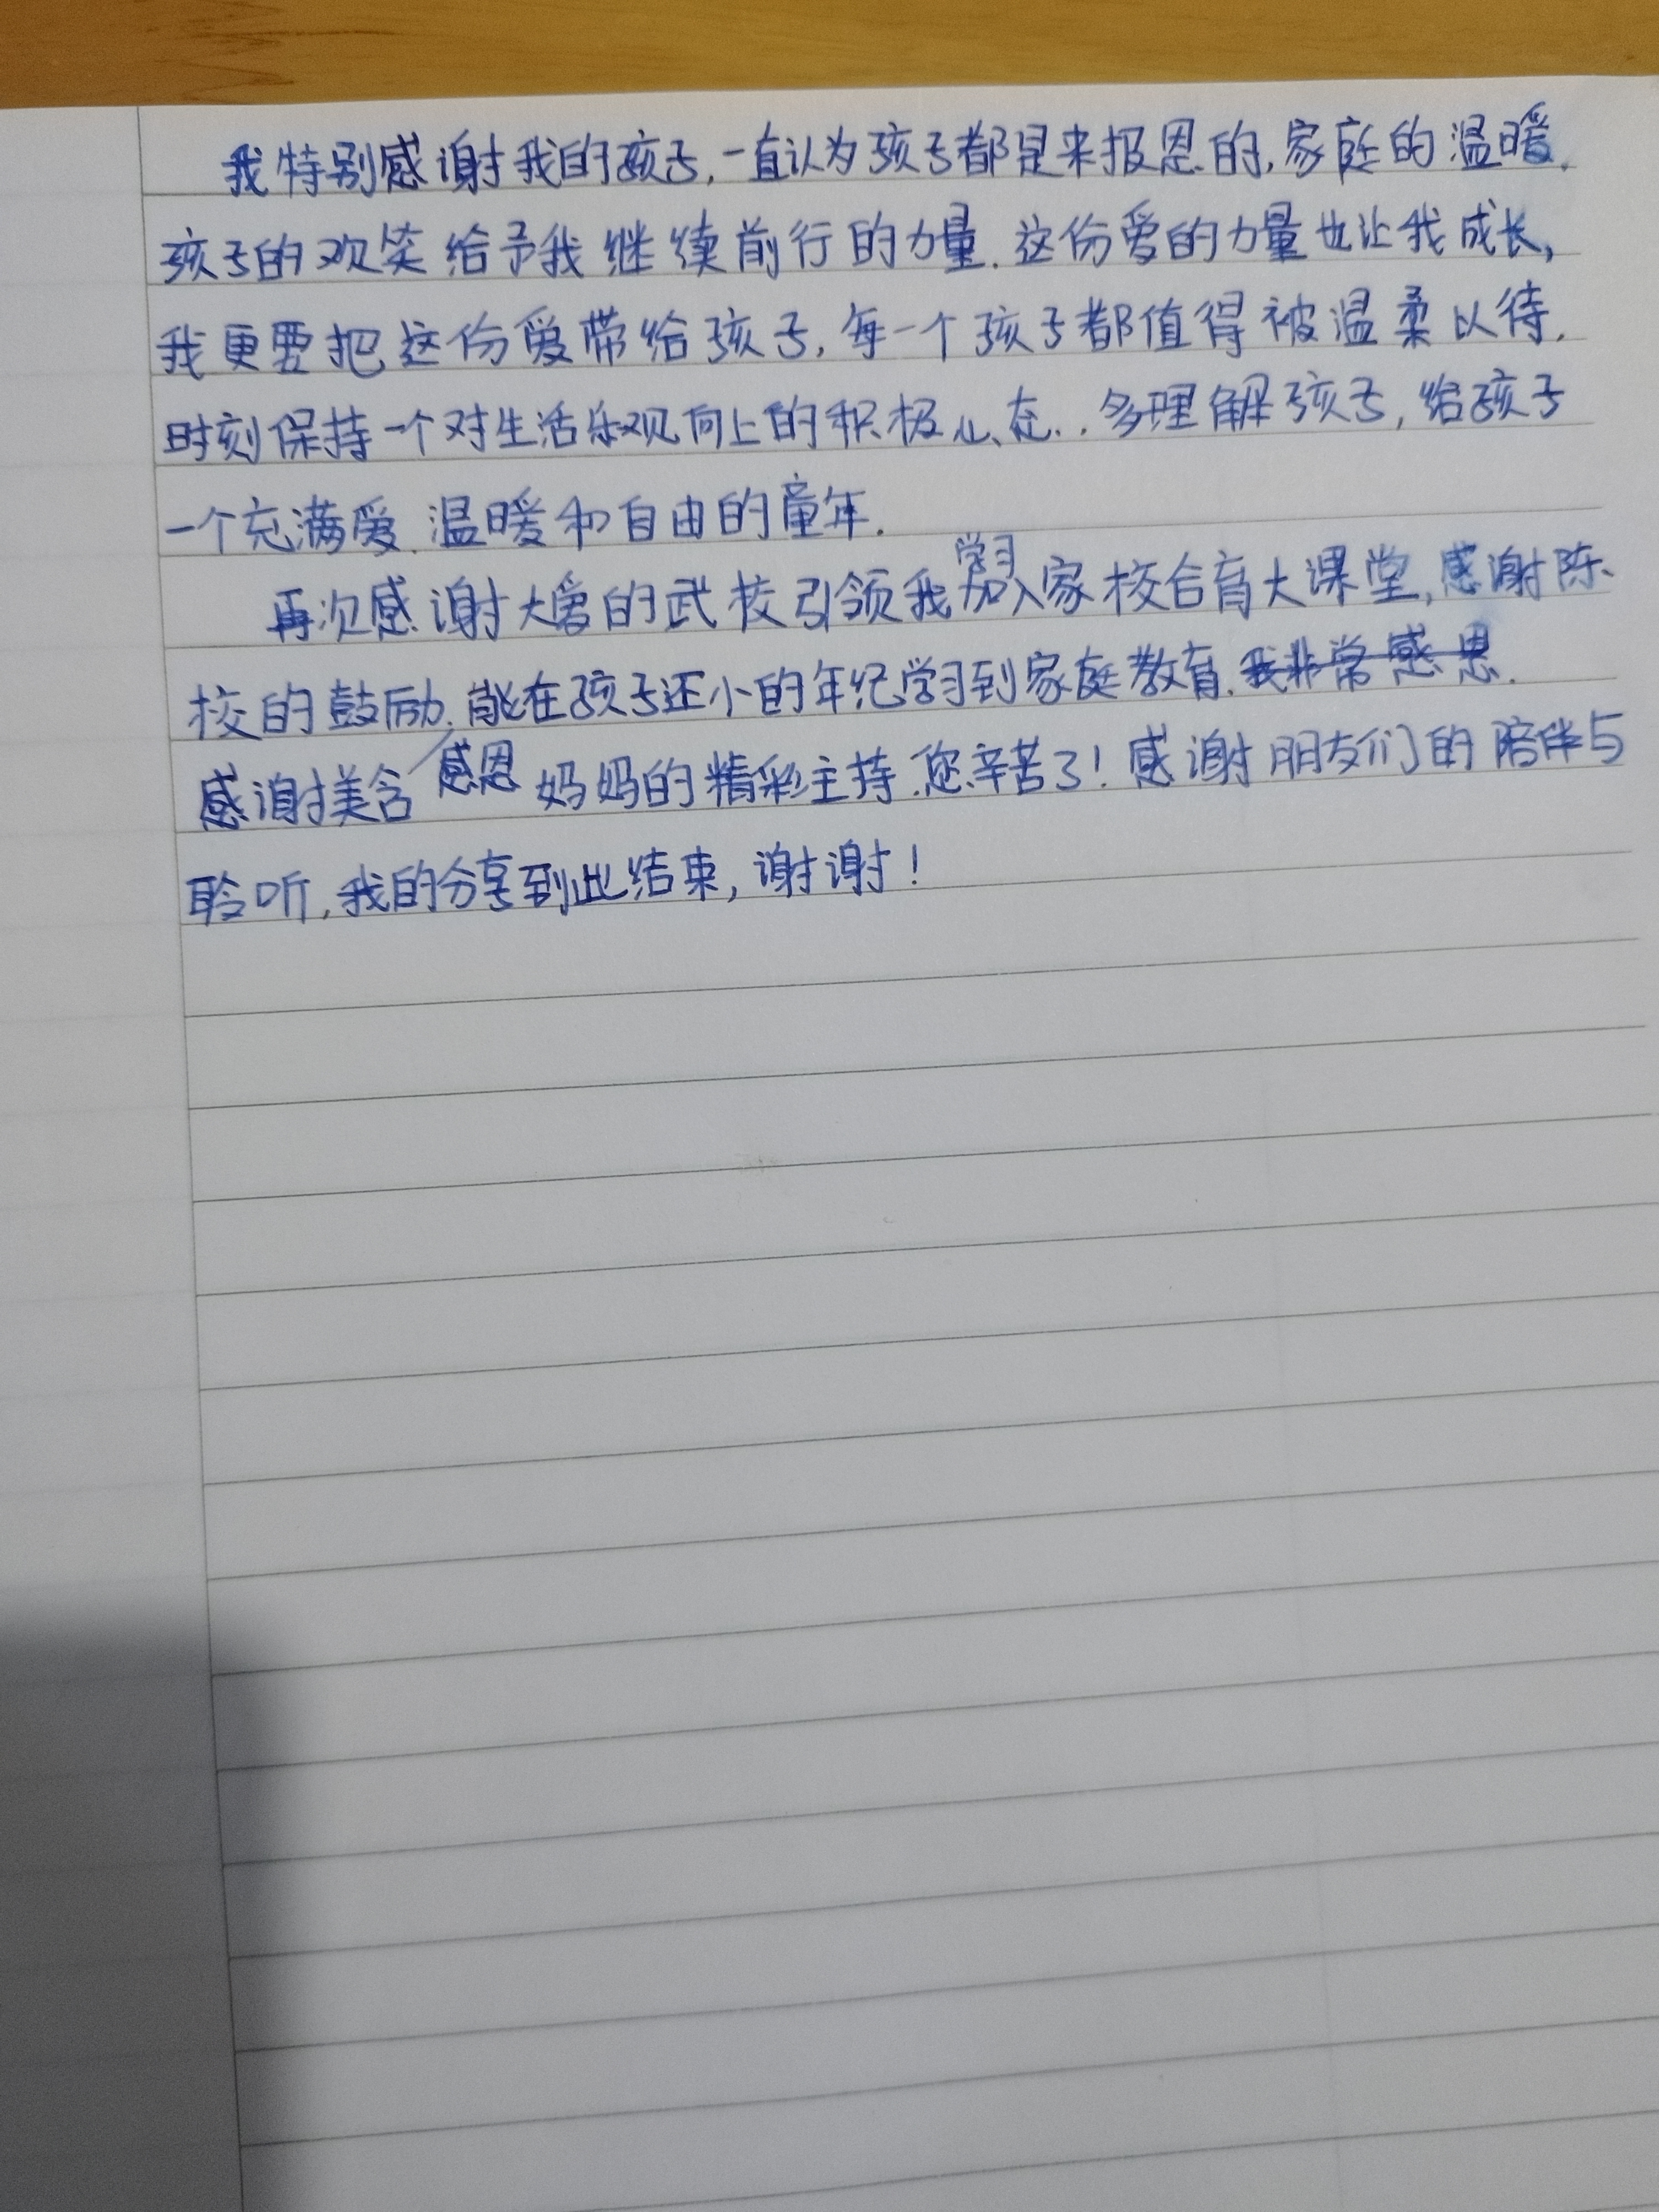 我特别感谢我的孩子,一直认为孩子都是来报恩的,家庭的温暖.
孩子的欢笑给予我继续前行的力量.这份爱的力量也让我成长,
我更要把这份爱带给孩子,每一个孩子都值得被温柔以待.
时刻保持一个对生活乐观向上的积极心态..多理解孩子,给孩子
一个充满爱.温暖和自由的童年.
学习
再次感谢大爱的武校引领我加入家校合育大课堂,感谢陈
校的鼓励.能在孩子还小的年纪学习到家庭教育.我非常感恩.
感恩
感谢美含妈妈的精彩主持.您辛苦了!感谢朋友们的陪伴与
聆听,我的分享到此结束,谢谢!